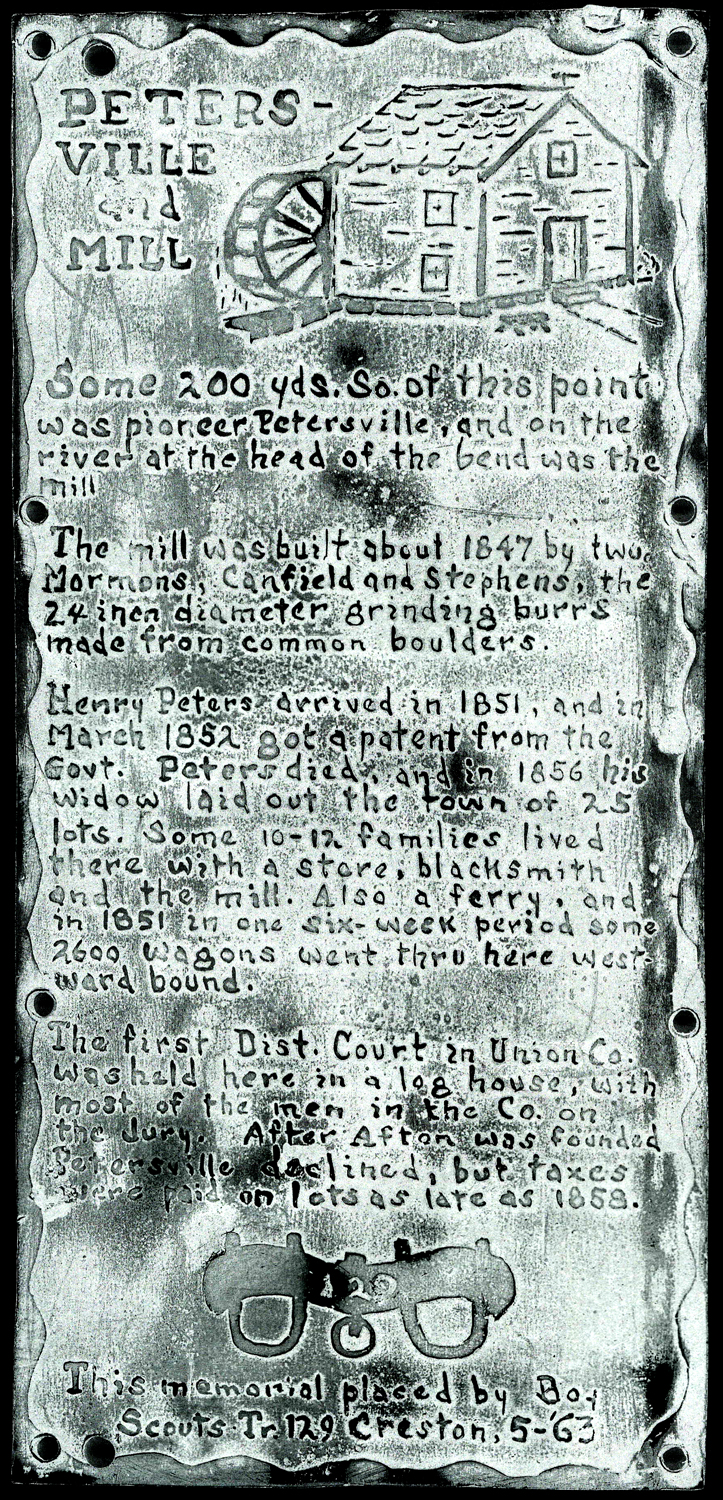 PETERS-
VILLE
and
MILL
Some 200 yds. So. of this point
was pioneer Petersville, and on the
river at the head of the bend was the
mill
The mill was built about 1847 by two
Mormons, Canfield and Stephens, the
24 inch diameter grinding burrs
made from common boulders.
Henry Peters arrived in 1851, and in
March 1852 got a patent from the
Govt. Peters died, and in 1856 his
widow laid out the town of 25
lots. Some 10-12 families lived
there with a store, blacksmith
and the mill. Also a ferry, and
in 1851 in one six-week period some
2600 wagons went thru here west-
ward bound.
The first Dist. Court in Union Co.
was held here in a log house, with
most of the men in the Co. on
the Jury. After Afton was founded
Petersville declined, but taxes
were paid on lots as late as 1858.
129
This memorial placed by Boy
Scouts Tr. 129 Creston, 5-'63